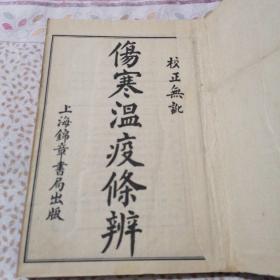 校正無訛
傷寒溫疫條辨
上海錦章書局出版